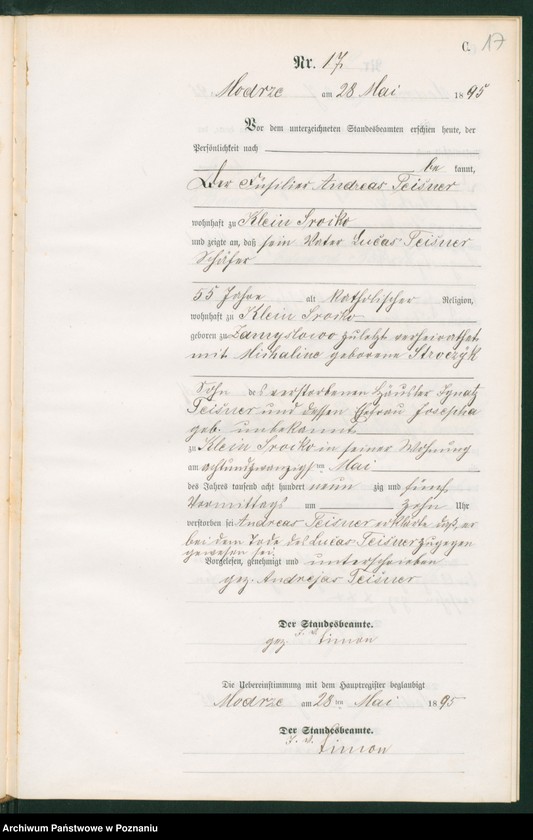 C. 17
Nr. 17
Modrze am 28 Mai 1895
Vor dem unterzeichneten Standesbeamten erschien heute, der
Persönlichkeit nach
be kannt,
Der Füsilier Andreas Teisner
wohnhaft zu Klein Sroiko
und zeigte an, daß sein Vater Lucas Teisner
Schäfer
55 Jahre alt katholischer Religion,
wohnhaft zu Klein Sroiko
geboren zu Zamyslowo zuletzt verheirathet
mit Michaline geborene Stroczyk
Sohn des verstorbenen Häusler Ignatz
Teisner und dessen Ehefrau Josepha
geb. unbekannt
zu Klein Sroiko in seiner Wohnung
am achtundzwanzigsten Mai
des Jahres tausend acht hundert neun zig und fünf,
Vormittags um zehn Uhr
verstorben sei Andreas Teisner erklärte daß er
bei dem Tode des Lucas Teisner zugegen
gewesen sei.
Vorgelesen, genehmigt und unterschrieben
gez. Andrejas Teisner
Der Standesbeamte.
gez. Simon
Die Uebereinstimmung mit dem Hauptregister beglaubigt
Modrze am 28ten Mai 1895
Der Standesbeamte.
Simon
Archiwum Państwowe w Poznaniu